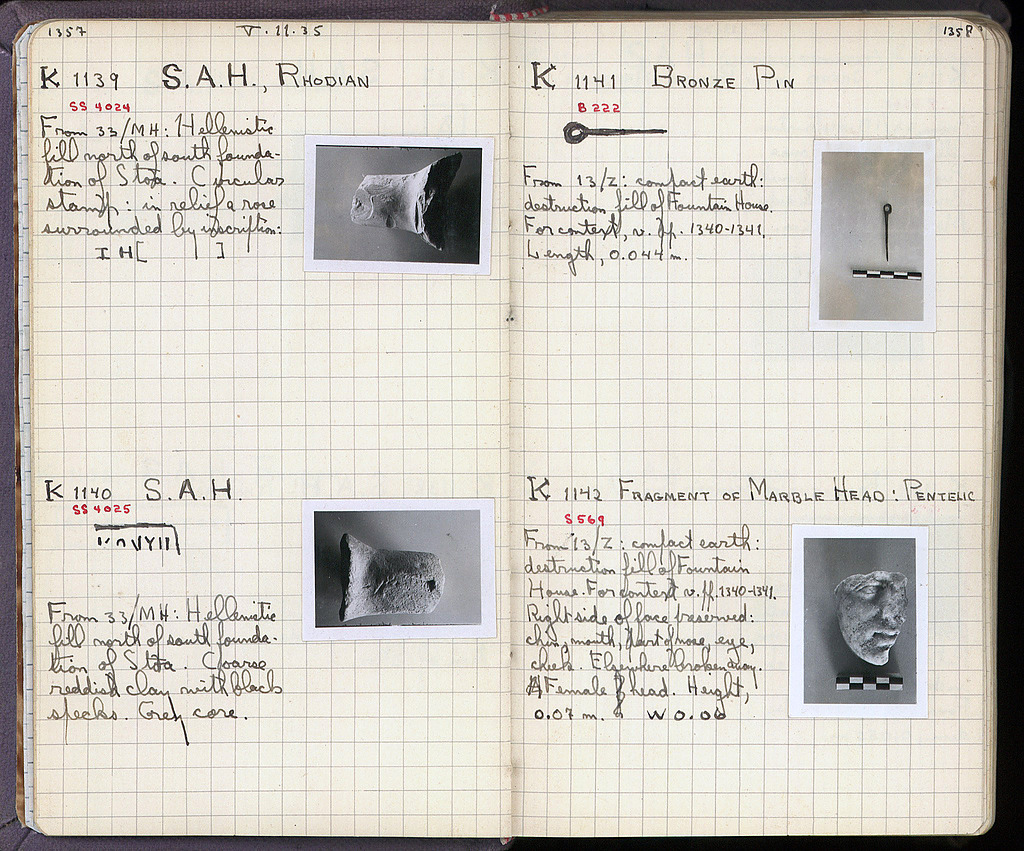 1357
V.11.35
K 1139 S.A.H., RHODIAN
SS 4024
From 33/MH: Hellenistic
fill north of south founda-
tion of Stoa. Circular
stamp: in relief a rose
surrounded by inscription:
I H [ ]
K 1140 S.A.H.
SS 4025
From 33/MH: Hellenistic
fill north of south founda-
tion of Stoa. Coarse
reddish clay with black
specks. Grey core.
1358
K 1141 BRONZE PIN
B 222
From 13/Z: compact earth:
destruction fill of Fountain House.
For context, v. pp. 1340-1341.
Length, 0.044 m.
K 1142 FRAGMENT OF MARBLE HEAD: PENTELIC
S 569
From 13/Z: compact earth:
destruction fill of Fountain
House. For context v. pp. 1340-1341.
Right side of face preserved:
chin, mouth, part of nose, eye,
cheek. Elsewhere broken away.
Female head. Height,
0.07 m. W 0.06